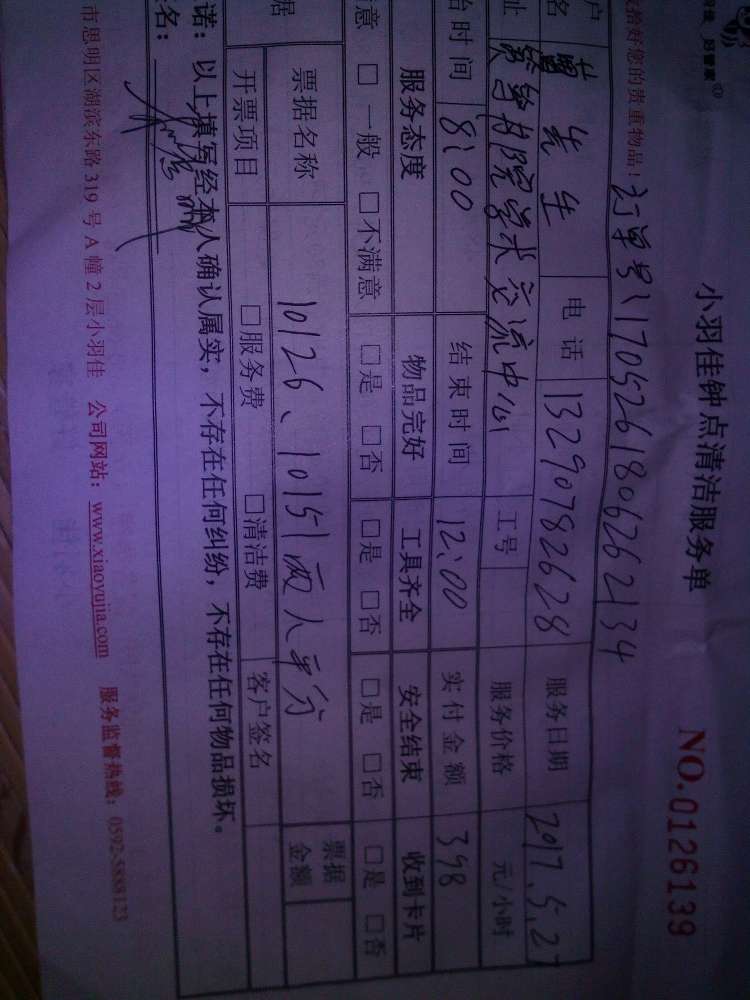 好管家®
小羽佳钟点清洁服务单
NO.0126139
拾好您的贵重物品！ 订单号:1705261806262134
户名 先生 电话 13290782628 服务日期 2017.5.27
学院学术交流中心 工号 服务价格 元/小时
始时间 8:00 结束时间 12:00 实付金额 398
服务态度 物品完好 工具齐全 安全结束 收到卡片
意 □一般 □不满意 □是 □否 □是 □否 □是 □否 □是 □否
据 票据名称 10126、10151两人平分 票据金额
开票项目 □服务费 □清洁费 客户签名
诺：以上填写经本人确认属实，不存在任何纠纷，不存在任何物品损坏。
名：
市思明区湖滨东路319号A幢2层小羽佳 公司网站：www.xiaoyujia.com 服务监督热线：0592-5888123